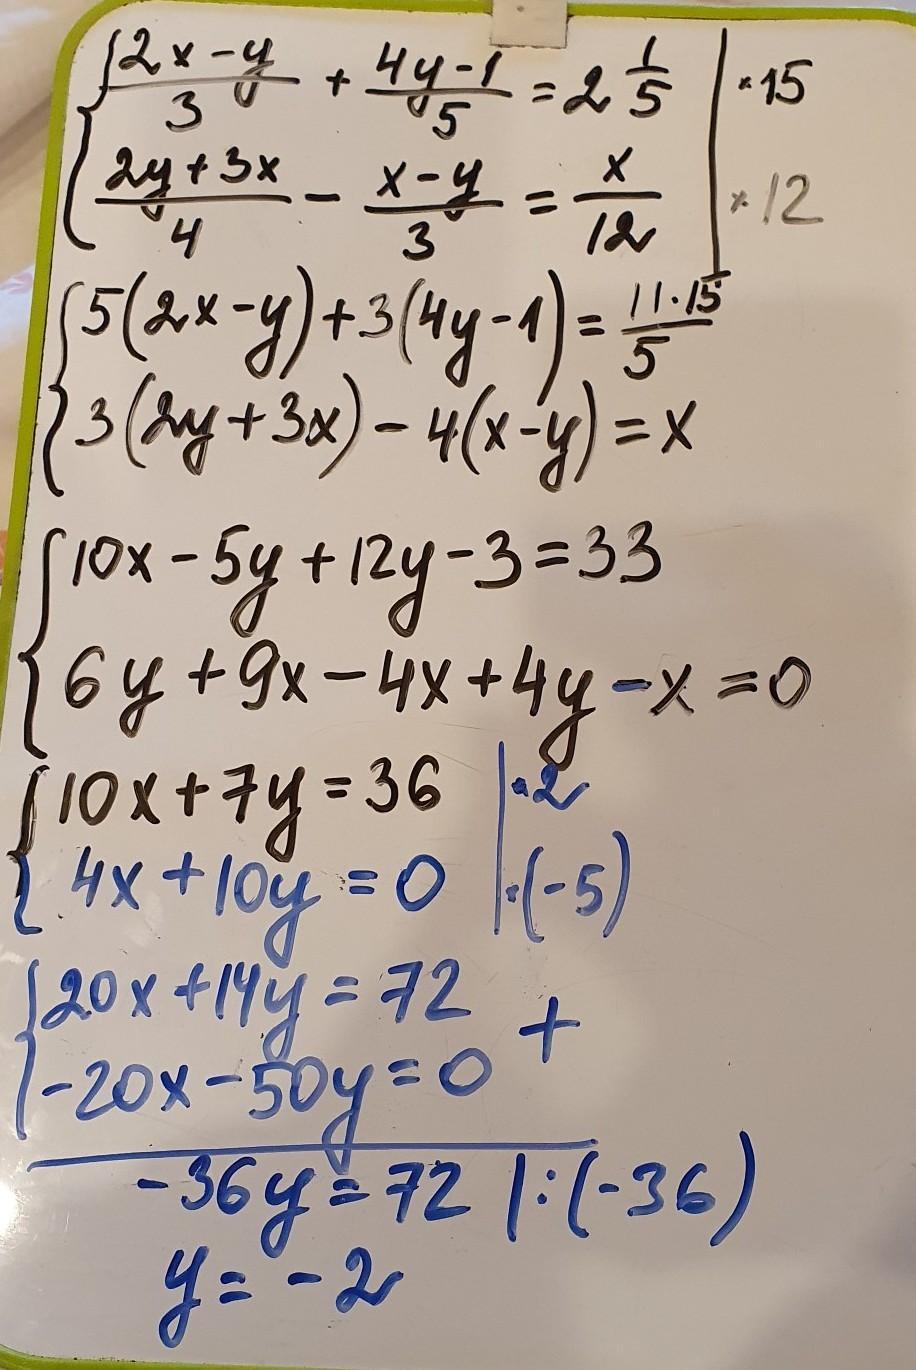 { (2x-y)/3 + (4y-1)/5 = 2 1/5 | ·15
(2y+3x)/4 - (x-y)/3 = x/12 | ·12
{ 5(2x-y)+3(4y-1)= (11·15)/5
3(2y+3x)-4(x-y)=x
{ 10x-5y+12y-3=33
6y+9x-4x+4y-x=0
{ 10x+7y=36 | ·2
4x+10y=0 | ·(-5)
{ 20x+14y=72 +
-20x-50y=0
-36y=72 |:(-36)
y=-2